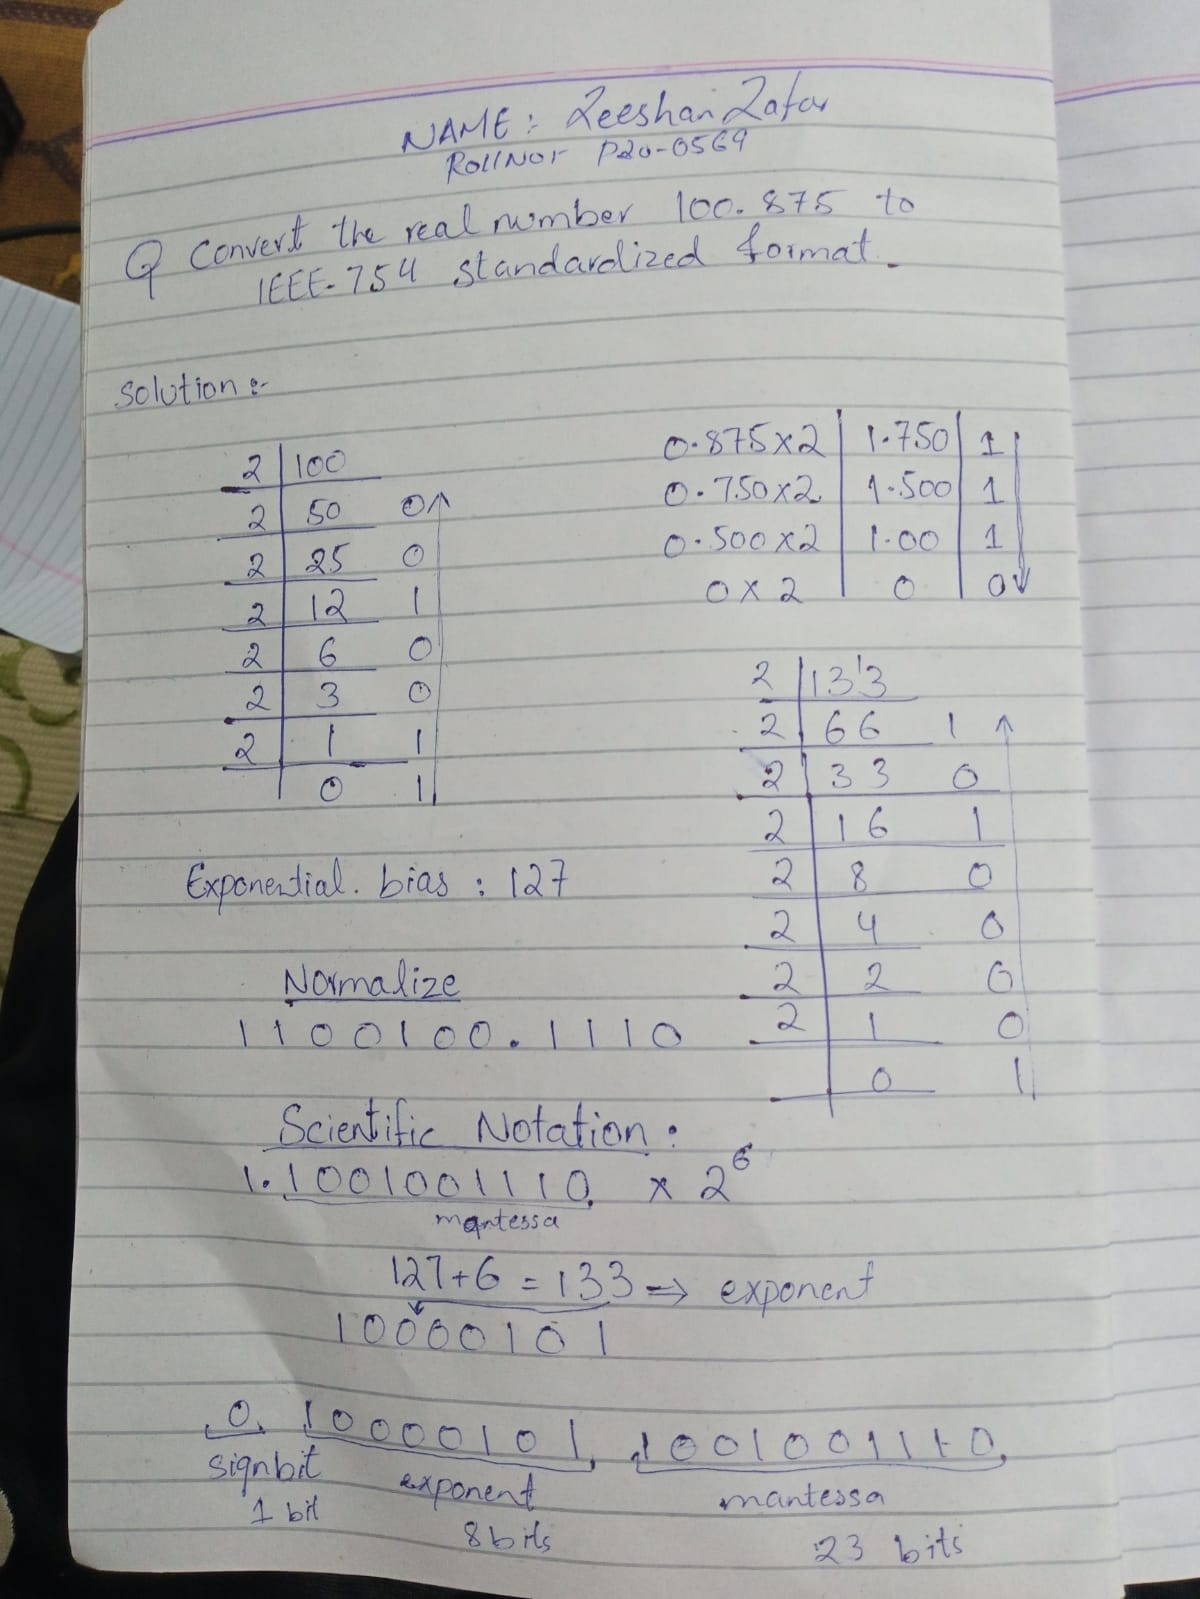 NAME: Zeeshan Zafar
Roll No: P20-0569
Q Convert the real number 100.875 to
IEEE-754 standardized format.
Solution:-
2 | 100
2 | 50 0
2 | 25 0
2 | 12 1
2 | 6 0
2 | 3 0
2 | 1 1
0 1
0.875x2 | 1.750 | 1
0.750x2 | 1.500 | 1
0.500x2 | 1.00 | 1
0x2 | 0 | 0
2 | 133
2 | 66 1
2 | 33 0
2 | 16 1
2 | 8 0
2 | 4 0
2 | 2 0
2 | 1 0
0 1
Exponential. bias : 127
Normalize
1100100.1110
Scientific Notation:
1.1001001110 x 2^6
mantessa
127+6 = 133 => exponent
10000101
0 10000101 1001001110
signbit exponent mantessa
1 bit 8 bits 23 bits